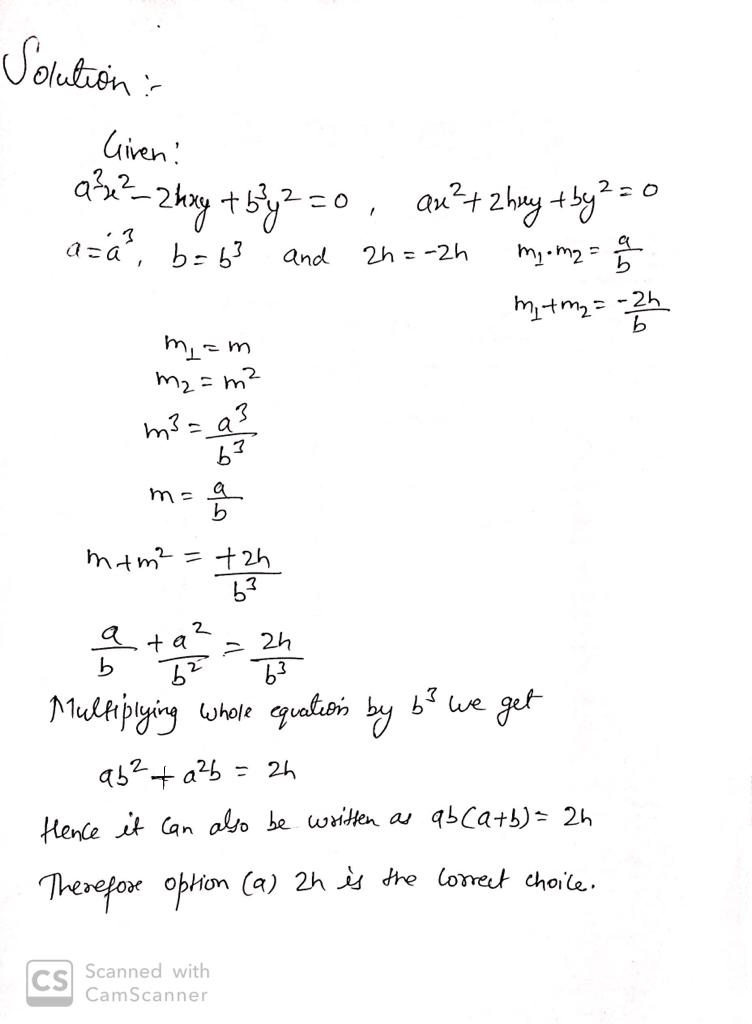 Solution :-
Given:
a³x² - 2hxy + b³y² = 0 , ax² + 2hxy + by² = 0
a = a³, b = b³ and 2h = -2h m₁·m₂ = a/b
m₁ + m₂ = -2h/b
m₁ = m
m₂ = m²
m³ = a³/b³
m = a/b
m + m² = +2h/b³
a/b + a²/b² = 2h/b³
Multiplying whole equation by b³ we get
ab² + a²b = 2h
Hence it can also be written as ab(a+b) = 2h
Therefore option (a) 2h is the correct choice.
CS Scanned with
CamScanner